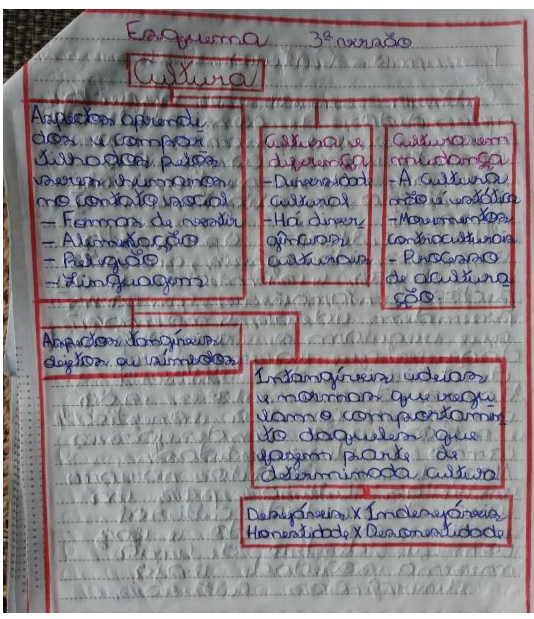 Esquema 3ª versão
Cultura
Aspectos aprendi
dos e compar
tilhados pelos
seres humanos
no contato social
- Formas de vestir
- Alimentação
- Religião
- Linguagem
Cultura e
diferença
- Diversidade
cultural
- Há diver
gências
culturais
Cultura em
mudança
- A cultura
não é estática
- Movimentos
contraculturais
- Processo
de acultura
ção.
Aspectos tangíveis
objetos ou símbolos
Intangíveis ideias
e normas que regu
lam o comportamen
to daqueles que
fazem parte de
determinada cultura
Desejáveis X Indesejáveis
Honestidade X Desonestidade